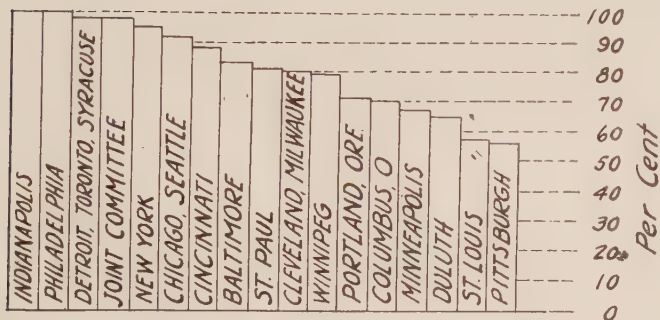 INDIANAPOLIS
PHILADELPHIA
DETROIT, TORONTO, SYRACUSE
JOINT COMMITTEE
NEW YORK
CHICAGO, SEATTLE
CINCINNATI
BALTIMORE
ST. PAUL
CLEVELAND, MILWAUKEE
WINNIPEG
PORTLAND, ORE.
COLUMBUS, O
MINNEAPOLIS
DULUTH
ST. LOUIS
PITTSBURGH
100
90
80
70
60
50
40
30
20
10
0
Per Cent